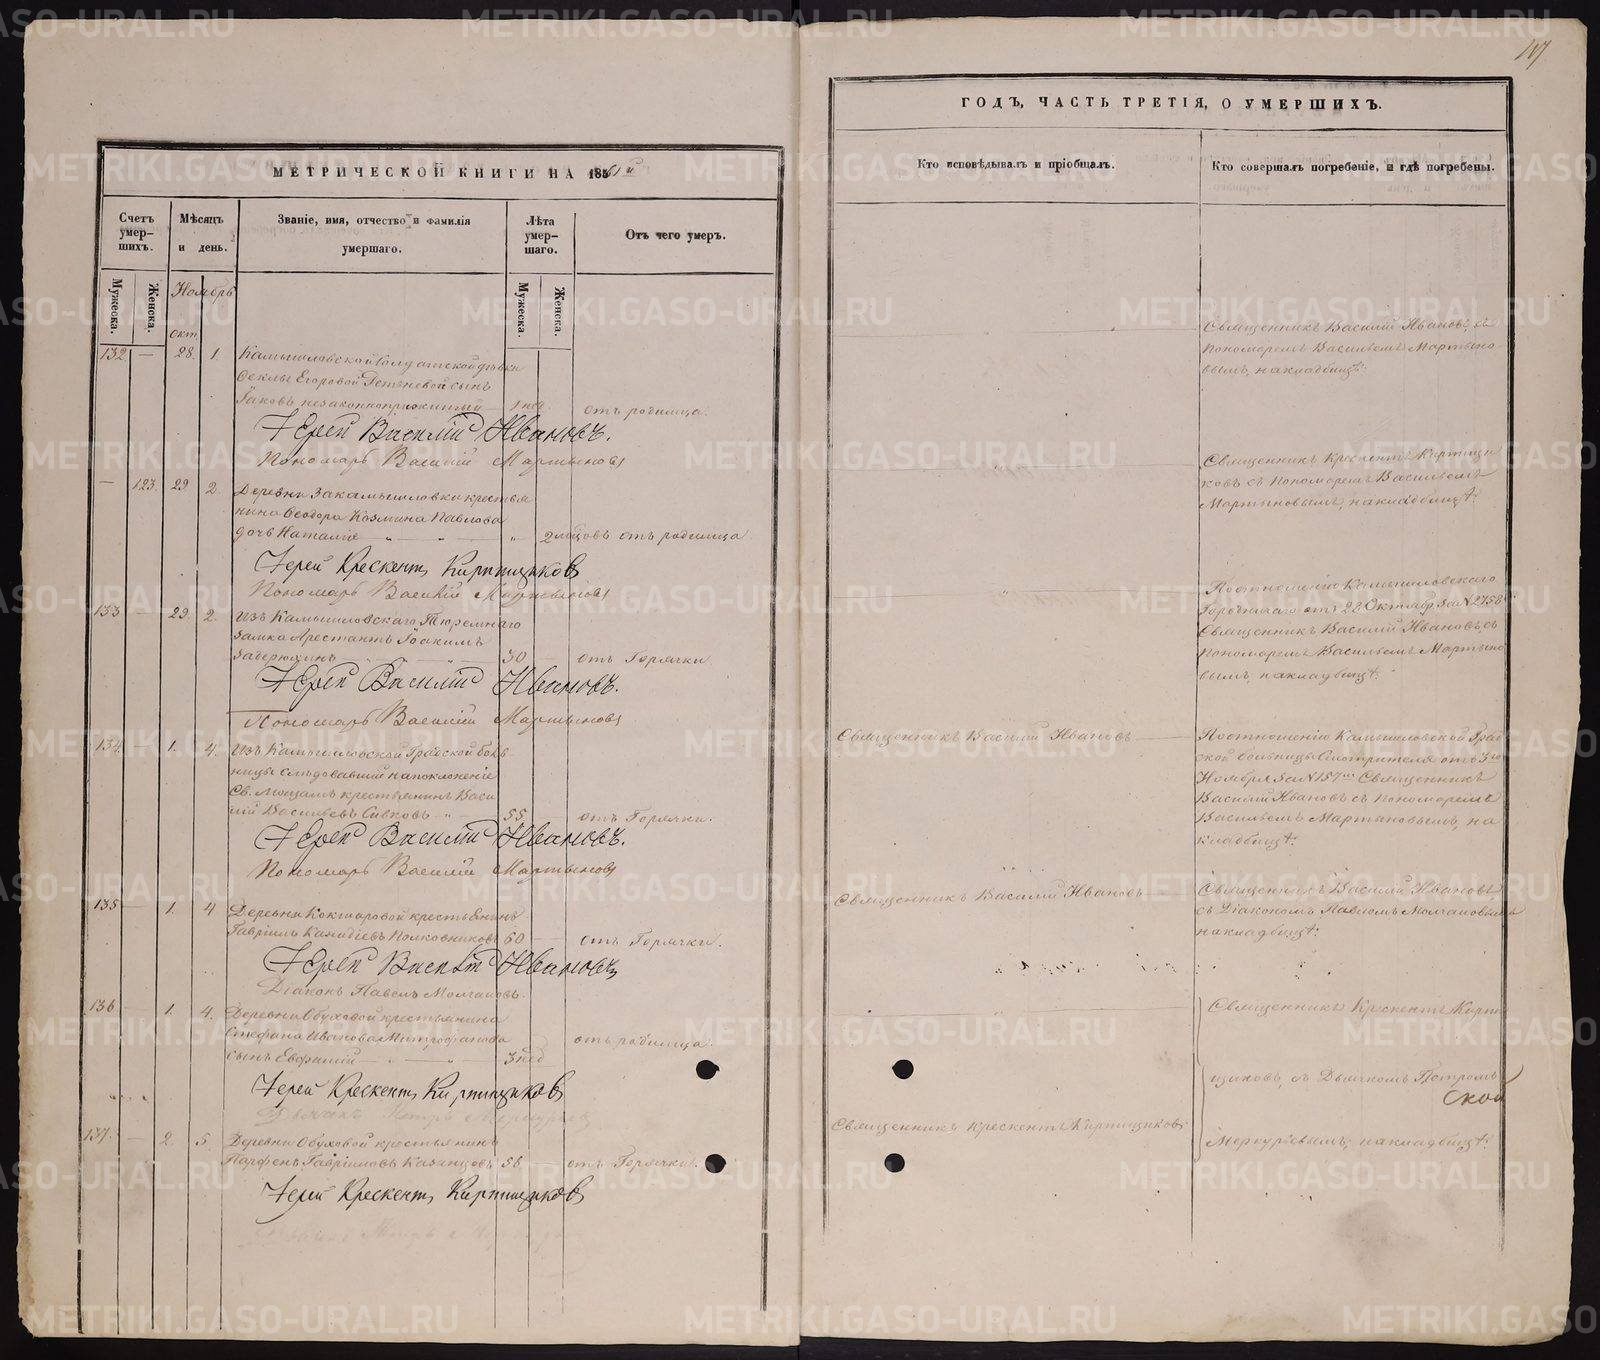 МЕТРИЧЕСКОЙ КНИГИ НА 1861й
Счетъ умер-шихъ.
Мѣсяцъ и день.
Званіе, имя, отчество и фамилія умершаго.
Лѣта умер-шаго.
Отъ чего умеръ.
Мужеска.
Женска.
Мужеска.
Женска.
Ноябрь
окт.
132 — 28. 1. Камышловской Солдатской дѣвки
Ѳеклы Егоровой сынъ
Іаковъ незаконноприжитый 1 нед. отъ родимца.
Іерей Василій Ивановъ.
Пономарь Василій Мартыновъ
— 123. 29 2. Деревни Закамышловки крестья
нина Ѳеодора Козмина Павлова
дочь Наталія — „ — „ — „ 2 мѣсцовъ отъ родимца
Іерей Крескентъ Кирпищиковъ
Пономарь Василій Мартыновъ
133 — 29. 2. Изъ Камышловскаго Тюремнаго
замка Арестантъ Іоакимъ
30 — отъ Горячки
Іерей Василій Ивановъ.
Пономарь Василій Мартыновъ
134. — 1. 4. Изъ Камышловской Градской боль
ницы слѣдовавшій на поклоненіе
Св. Мощамъ крестьянинъ Васи
лій Васильевъ Сивковъ 55 отъ Горячки.
Іерей Василій Ивановъ.
Пономарь Василій Мартыновъ
135 — 1. 4 Деревни Кокшаровой крестьянинъ
Гавріилъ Полковниковъ 60 — отъ Горячки.
Іерей Василій Ивановъ
Діаконъ Павелъ Молчановъ.
136 — 1. 4. Деревни Обуховой крестьянина
Стефана Иванова Митрофанова
сынъ Евфимій — „ — „ 3 нед отъ родимца.
Іерей Крескентъ Кирпищиковъ
Дьячекъ Петръ Меркурьевъ
137. — 2. 5. Деревни Обуховой крестьянинъ
Парфенъ Гавріиловъ Казанцовъ 56 отъ Горячки.
Іерей Крескентъ Кирпищиковъ
Дьячекъ Петръ
ГОДЪ, ЧАСТЬ ТРЕТІЯ, О УМЕРШИХЪ.
Кто исповѣдывалъ и пріобщалъ.
Кто совершалъ погребеніе, и гдѣ погребены.
Священникъ Василій Ивановъ, съ
Пономаремъ Васильемъ Мартыно-
вымъ, на кладбищѣ.
Священникъ Крескентъ Кирпищи
ковъ съ Пономаремъ Васильемъ
Мартыновымъ, на кладбищѣ.
По отношенію Камышловскаго
Городничаго отъ 28 Октября за № 2758
Священникъ Василій Ивановъ, съ
Пономаремъ Васильемъ Мартыно
вымъ, на кладбищѣ.
Священникъ Василій Ивановъ
По отношенію Камышловской Град
ской больницы Смотрителя отъ 3го
Ноября за № 157 Священникъ
Василій Ивановъ съ Пономаремъ
Васильемъ Мартыновымъ, на
кладбищѣ.
Священникъ Василій Ивановъ
Священникъ Василій Ивановъ,
съ Діакономъ Павломъ Молчановымъ
на кладбищѣ.
Священникъ Крескентъ Кирпи
щиковъ, съ Дьячкомъ Петромъ
Священникъ Крескентъ Кирпищиковъ
Меркурьевымъ, на кладбищѣ.
METRIKI.GASO-URAL.RU